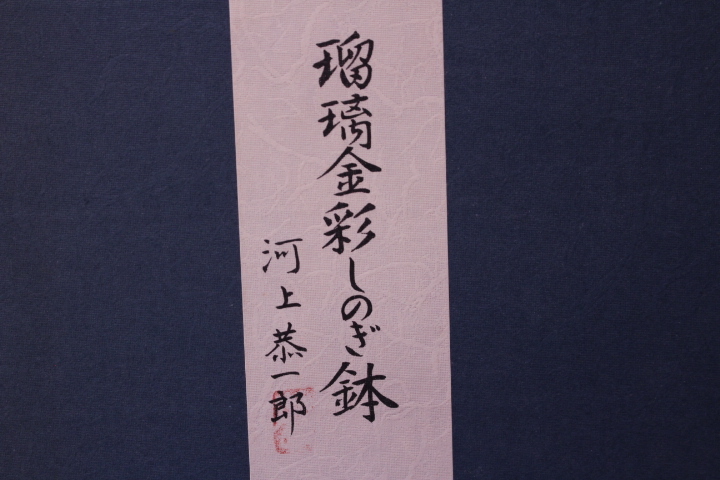 瑠璃金彩しのぎ鉢
河上恭一郎